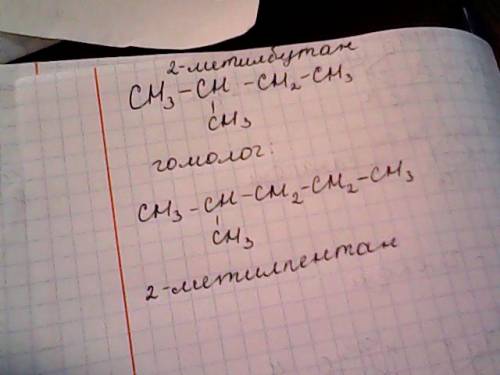 2-метилбутан
CH₃-CH-CH₂-CH₃
CH₃
гомолог:
CH₃-CH-CH₂-CH₂-CH₃
CH₃
2-метилпентан